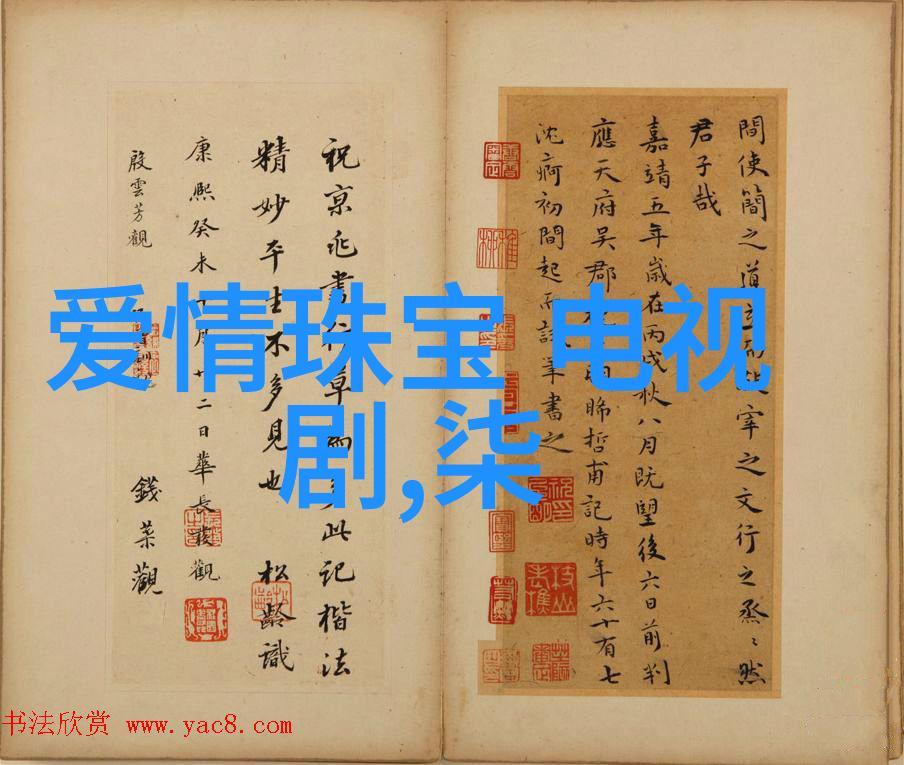 間使簡之道立而
宰之文行之烝〻然
君子哉
嘉靖五年歲在丙戌秋八月既望後六日前判
應天府吳郡祝
明晞哲甫記時年六十有七
沈痾初間起
筆書之
祝京兆書行草
此記楷法
精妙平生不多見也
松齡識
康熙癸未
月十二日華長發觀
殷雲芳觀
錢
觀
爱情珠宝 电视
剧,柒
书法欣赏 www.yac8.com